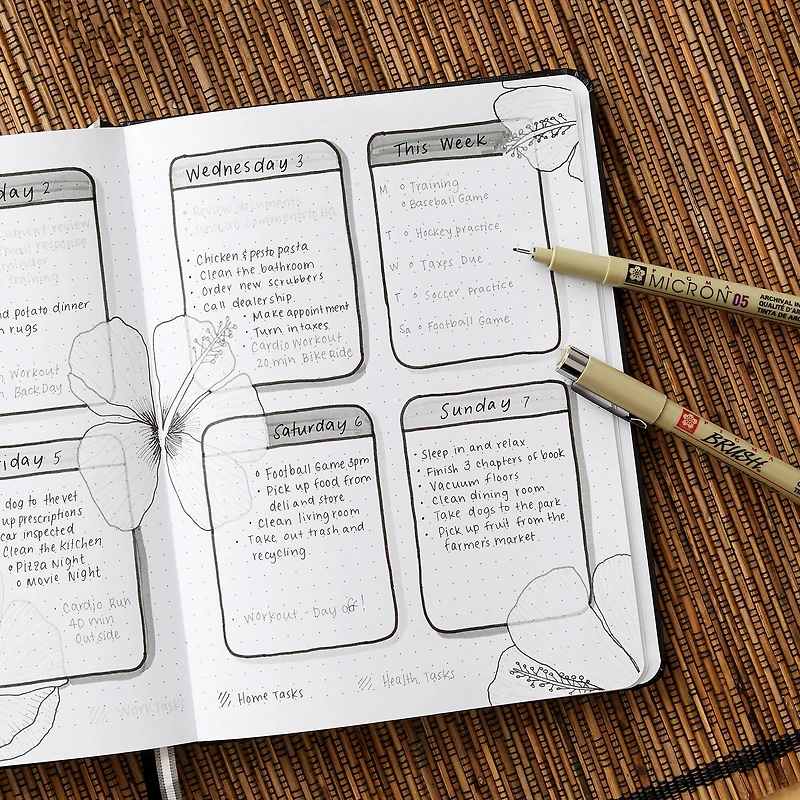 day 2
document review
email response
reminder
training
and potato dinner
rugs
Workout
Back Day
Friday 5
dog to the vet
up prescriptions
car inspected
Clean the kitchen
Pizza Night
Movie Night
Cardio Run
40 min
Outside
Work Tasks
Wednesday 3
Review documents
Send all comments to
Chicken & pesto pasta
Clean the bathroom
Order new scrubbers
Call dealership
Make appointment
Turn in taxes
Cardio Workout
20 min Bike Ride
This Week
M Training
Baseball Game
T Hockey practice
W Taxes Due
T Soccer practice
Sa Football Game
Saturday 6
Football Game 3pm
Pick up food from
deli and store
Clean living room
Take out trash and
recycling
Workout - Day off!
Sunday 7
Sleep in and relax
Finish 3 chapters of book
Vacuum floors
Clean dining room
Take dogs to the park
Pick up fruit from the
farmer's market
Home Tasks
Health Tasks
PIGMA
MICRON 05
ARCHIVAL IN
QUALITÉ D'AR
TINTA DE AR
BRUSH